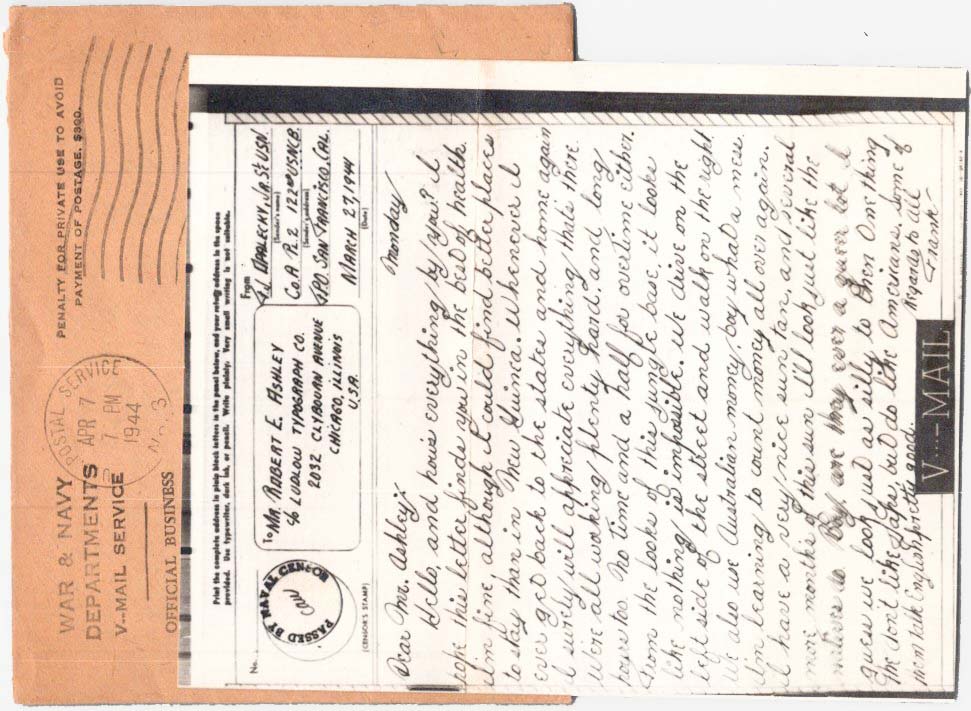 WAR & NAVY
DEPARTMENTS
V--MAIL SERVICE
OFFICIAL BUSINESS
POSTAL SERVICE
APR 7
7 PM
1944
No. 3
PENALTY FOR PRIVATE USE TO AVOID
PAYMENT OF POSTAGE, $300.
Print the complete address in plain block letters in the panel below, and your return address in the space
provided. Use typewriter, dark ink, or pencil. Write plainly. Very small writing is not suitable.
No.
PASSED BY NAVAL CENSOR
(CENSOR'S STAMP)
To
MR. ROBERT E. ASHLEY
c/o LUDLOW TYPOGRAPH CO.
2032 CLYBOURN AVENUE
CHICAGO, ILLINOIS
U.S.A.
From
JR. S1/c USN.
(Sender's name)
Co. A P. 2 122nd USNCB.
(Sender's address)
FPO SAN FRANCISCO, CAL.
MARCH 27, 1944
(Date)
Monday
Dear Mr. Ashley;
Hello, and hows everything by you? I
hope this letter finds you in the best of health
Im fine, although I could find better places
to stay than in New Guinea. Whenever I
ever get back to the states and home again
I surely will appreciate everything thats there.
We're all working plenty hard, and long
hours too. No time and a half for overtime either.
From the looks of this jungle base it looks
like nothing is impossible. We drive on the
left side of the street and walk on the right
We also use Australian money, boy what a mess
Im learning to count money all over again.
I have a very nice sun tan, and several
more months of this sun Ill look just like the
natives do. Boy are they ever a queer lot I
guess we look just as silly to them One thing
the dont like Japs, but do like Americans, some of
them talk English pretty good.
Regards to all
Frank
V···-MAIL